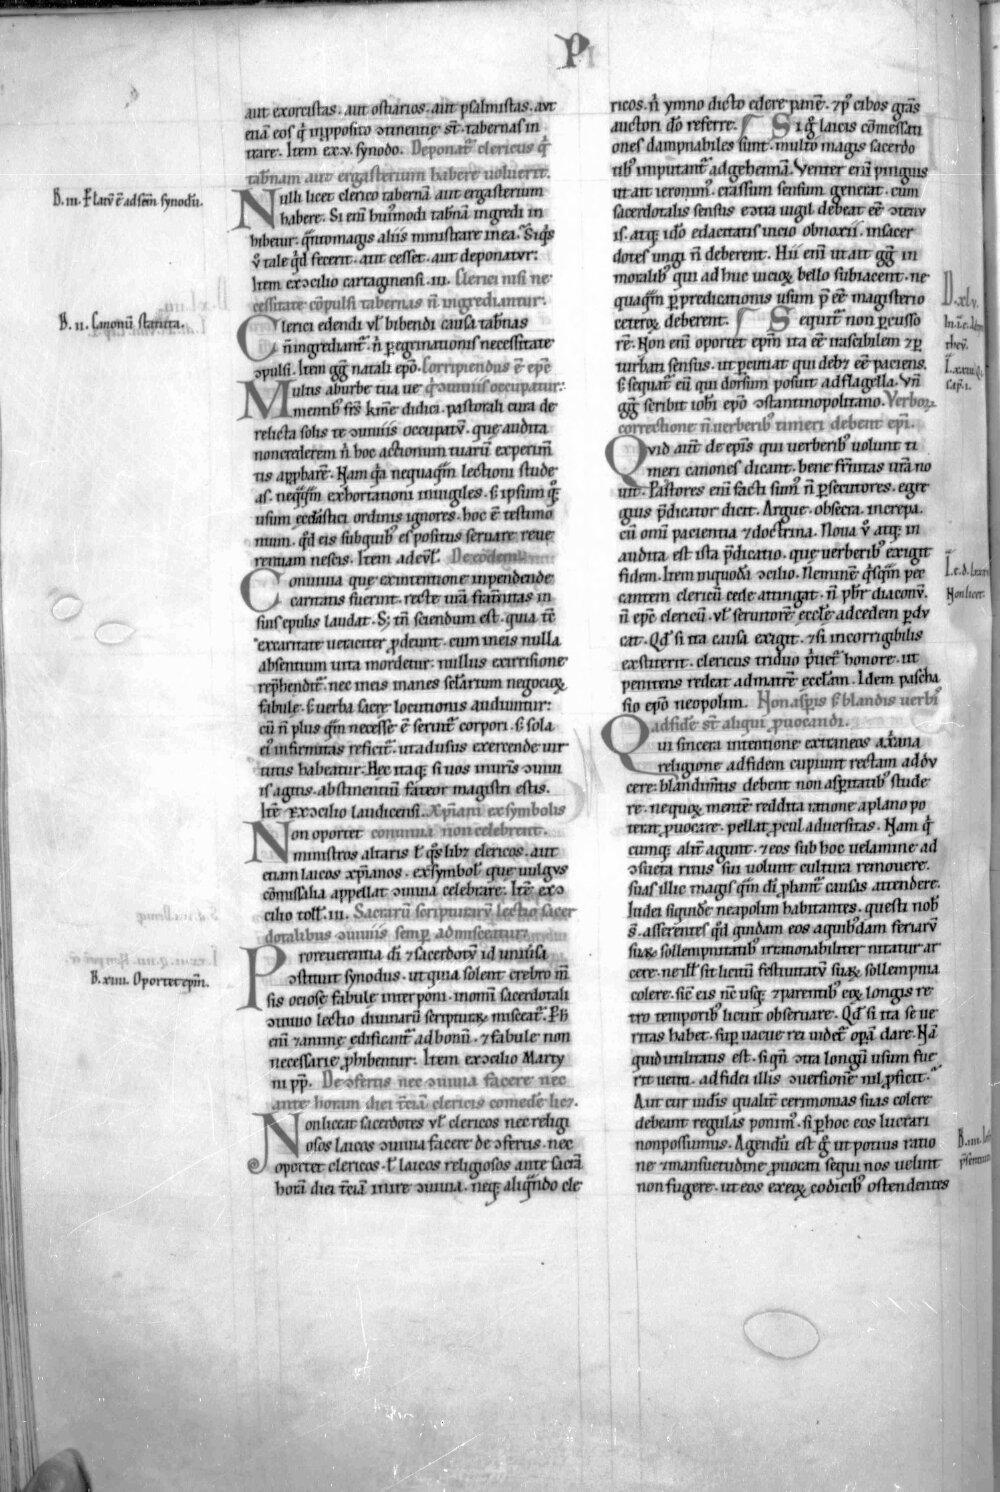 P
aut exorcistas. aut ostiarios. aut psalmistas. aut
etiā eos q̇ in ꝓposito ↄtinentię st̄. tabernas in
trare. Item ex.v. synodo. Deponat᷑ clericus q̇
tab̄nam aut ergasterium habere uoluerit.
Nulli licet clerico tabernā aut ergasterium
habere. Si eni᷒ hui᷒modi tab̄nā ingredi in
hibetur: q̄ntomagis aliis ministrare in ea. Siq̇s
v̊ tale q̇d fecerit. aut cesset. aut deponatur:
Item ex ↄcilio cartaginensi.iii. Clerici nisi ne
cessitate cōpulsi tabernas n̄ ingrediantur:
Clerici edendi ul̄ bibendi causa tab̄nas
n̄ ingrediant᷑. n̊ pegrinationis necessitate
ↄpulsi. Item gḡ natali epō. Corripiendus ē ep̄c
Multus ab urbe tua ue q̇ ↄuiuiis occupatur:
nientib᷒ frīs kmē didici. pastorali cura de
relicta solis te ↄuiuiis occupatū. quę audita
non crederem n̊ hoc actionum tuarū experim̄
tis apꝓbarē. Nam q̇a nequaq̄m lectioni stude
as. neq̄q̄m exhortationi inuigiles. s; ipsum q̨
usum ecclīastici ordinis ignores. hoc ē testimo
nium. q̇d eis sub quib᷒ es positus seruare reue
rentiam nescis. Item ad eūd̄. De eodem.
Conuiuia quę ex intentione inpendendę
caritatis fuerint. recte ur̄a fraternitas in
suis epulis laudat. S; tn̄ sciendum est. quia tc̄
ex caritate ueraciter ꝓdeunt. cum in eis nulla
absentium uita mordetur: nullus ex irrisione
rep̄hendit᷑. nec in eis inanes sęlarium negotioꝝ
fabulę. s; uerba sacrę locutionis audiuntur:
cū n̄ plus q̄m necesse ē seruit᷑ corpori. s; sola
ei᷒ infirmitas reficit᷑. ut ad usus exercendę uir
tutis habeatur: Hęc itaq; si uos in ur̄is ↄuiu
iis agitis. abstinentiū fateor magistri estis.
Itē ex ↄcilio laudicensi. Xp̄iani ex symbolis
Non oportet conuiuia non celebrent.
ministros altaris ł q̇slib; clericos. aut
etiam laicos xp̄ianos. ex symbol᷒ quę uulgus
cōmissalia appellat ↄuiuia celebrare. Itē ex ↄ
cilio toll̄.iii. Sacrarū scripturarū lectio sacer
dotalibus ↄuiuiis semp admisceatur:
Pro reuerentia dī ⁊ sacerdotū id uniūsa
ↄstituit synodus. ut quia solent crebro m̄
sis ociosę fabulę interponi. in omni sacerdotali
ↄuiuio lectio diuinarū scripturaꝝ misceat᷑. P h̄
eni᷒ ⁊ animę edificant᷑ ad bonū. ⁊ fabulę non
necessarię ꝓhibentur: Item ex ↄcilio Marti
ni pp̄. De ↄfertis nec ↄuiuia facere nec
ante horam diei t̄ciā clericis comedē lic;.
Non liceat sacerdotes ul̄ clericos nec religi
osos laicos ↄuiuia facere de ↄfertis. nec
oportet clericos. ł laicos religiosos ante sacrā
horā diei t̄ciā inire ↄuiuia. neq; aliq̄ndo cle
ricos. n̊ ymno dicto edere panē. ⁊ p᷒ cibos grās
auctori dō referre. Si g̊ laicis cōmessati
ones dampnabiles sunt. multo magis sacerdo
tib᷒ imputant᷑ ad gehennā. Venter eni᷒ pinguis
ut ait ieronim᷒. crassum sensum generat. cum
sacerdotalis sensus ecↄtra uigil debeat eē ↄtenu
is. atq; idō edacitatis uicio obnoxii. in sacer
dotes ungi n̄ deberent. Hii eni᷒ ut ait gḡ in
moralib᷒ qui adhuc uicioꝝ bello subiacent. ne
quaq̄m p predicationis usum p̄ eē magisterio
ceteroꝝ deberent. Sequit᷑ non pcusso
rē. Non eni᷒ oportet epm̄ ita eē irascibilem ⁊ p
turbati sensus. ut pcutiat qui deb; eē paciens.
s; sequat᷑ eū qui dorsum posuit ad flagella. Vn̄
gḡ scribit ioh̄i epō ↄstantinopolitano. Verboꝝ
correctione n̄ uerberib᷒ timeri debent epī.
Quid aut̄ de epīs qui uerberib᷒ uolunt ti
meri canones dicant. bene fr̄nitas ur̄a no
uit. Pastores eni᷒ facti sum᷒ n̄ psecutores. egre
gius p̄dicator dicit. Argue. obsecra. increpa.
cū omi᷒ pacientia ⁊ doctrina. Noua v̊ atq; in
audita est ista p̄dicatio. quę uerberib᷒ exigit
fidem. Item in quodā ↄcilio. Neminē q̇sq̄m pec
cantem clericū cede attingat. n̄ pb̄r diaconū.
n̄ epc̄ clericū. ul̄ seruitorē eccłę ad cedem pdu
cat. Qd̄ si ita causa exigit. ⁊ si incorrigibilis
extiterit. clericus triduo p̊uet᷑ honore. ut
penitens redeat ad matrē eccłam. Idem pascha
sio epō neopolim. Non aspis s; blandis uerbi᷒
ad fidē st̄ aliqui ꝓuocandi.
Qui sincera intentione extraneos a xp̄iana
religione ad fidem cupiunt rectam addu
cere: blandim̄tis debent non aspitatib᷒ stude
re. ne quoꝝ mentē reddita ratione a plano po
terat ꝓuocare. pellat ꝓcul aduersitas. Nam q̇
cumq; alit̄ agunt. ⁊ eos sub hoc uelamine ad
ↄsueta ritus sui uolunt cultura remouere.
suas illic magis q̄m dī phant᷑ causas attendere.
Iudei siquidē neapolim habitantes. questi nob᷒
s̄. asserentes q̇d quidam eos a quib᷒dam feriarū
suaꝝ sollempnitatib᷒ irrationabiliter nitatur ar
cere. ne ill̄ sit licitū festiuitatū suaꝝ sollempnia
colere. sic̄ eis nc̄ usq; ⁊ parentib᷒ eoꝝ longis re
tro temporib᷒ licuit obseruare. Qd̄ si ita se ue
ritas habet. sup uacue rei uidet᷑ opā dare. Nā
quid utilitatis est. si qn̄ ↄtra longū usum fue
rit uetiti. ad fidei illis ↄuersionē nil ꝓficit.
Aut cur iudeis qualit̄ cerimonias suas colere
debeant regulas ponim᷒. si p hoc eos lucrari
non possumus. Agendū est g̊ ut potius ratio
ne ⁊ mansuetudine ꝓuocati sequi nos uelint
non fugere. ut eos ex eoꝝ codicib᷒ ostendentes
B. iii. Płatū ē ad sem̄ synodū.
B. ii. Canonū statuta.
B. xiiii. Oportet epm̄.
D. xlv.